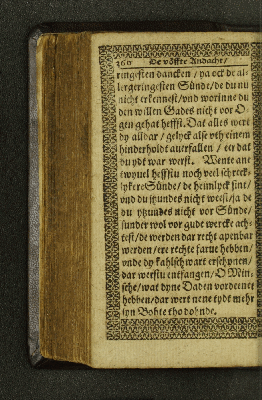 360 De vöffte Andacht/
ringesten dancken / ya ock de al-
lergeringesten Sünde/de du nu
nicht erkennest/vnd worinne du
den willen Gades nicht vor O-
gen gehat heffst. Dat alles wert
dy alldar / gelyck alse vth einem
hinderholdt auerfallen / eer dat
du ydt war werst. Wente ane
twyuel heffstu noch veel schreck-
lykere Sünde/ de heimlyck sint/
vnd du yßundes nicht weest/ja de
du yßundes nicht vor Sünde/
sunder wol vor gude wercke ach-
test/de werden dar recht apenbar
werden/ere rechte farue hebben/
vnde dy
dar werstu entfangen/O Min-
sche/wat dyne Daden vordenet
hebben/dar wert nene tydt mehr
syn Bothe tho dohnde.